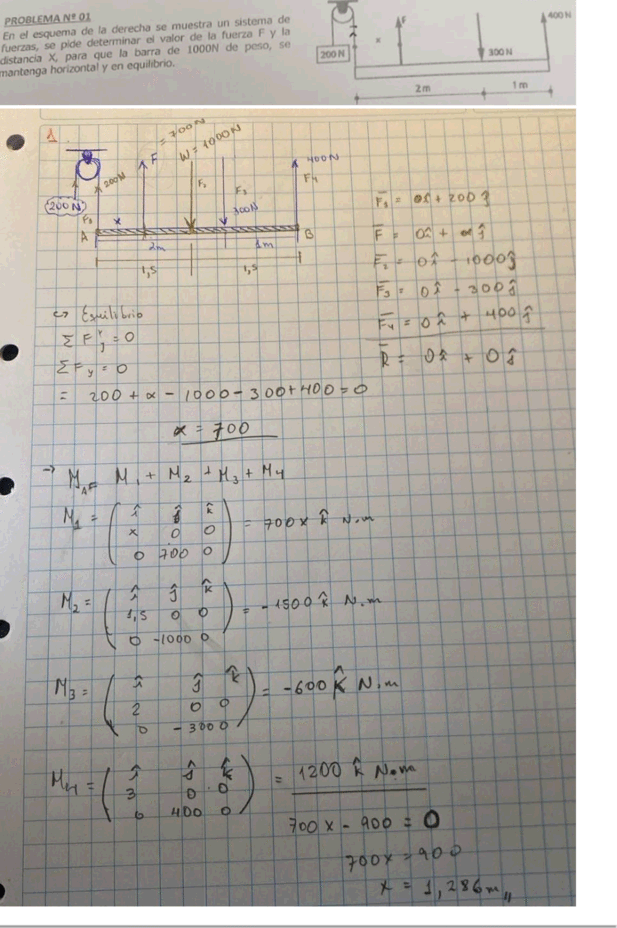 PROBLEMA Nº 01
En el esquema de la derecha se muestra un sistema de
fuerzas, se pide determinar el valor de la fuerza F y la
distancia X, para que la barra de 1000N de peso, se
mantenga horizontal y en equilibrio.
200 N
x
F
300 N
400 N
2m
1m
1
200 N
F₁
200N
F = 700N
W = 1000N
F₂
F₃
300N
400N
F₄
A
x
B
2m
1m
1,5
1,5
F₁ = 0î + 200ĵ
F = 0î + αĵ
F₂ = 0î - 1000ĵ
F₃ = 0î - 300ĵ
F₄ = 0î + 400ĵ
R = 0î + 0ĵ
↪ Equilibrio
ΣFy = 0
= 200 + α - 1000 - 300 + 400 = 0
α = 700
→ M_A = M₁ + M₂ + M₃ + M₄
M₁ = ( î ĵ k̂
x 0 0
0 700 0 ) = 700x k̂ N.m
M₂ = ( î ĵ k̂
1,5 0 0
0 -1000 0 ) = -1500 k̂ N.m
M₃ = ( î ĵ k̂
2 0 0
0 -300 0 ) = -600 k̂ N.m
M₄ = ( î ĵ k̂
3 0 0
0 400 0 ) = 1200 k̂ N.m
700x - 900 = 0
700x = 900
x = 1,286m,,